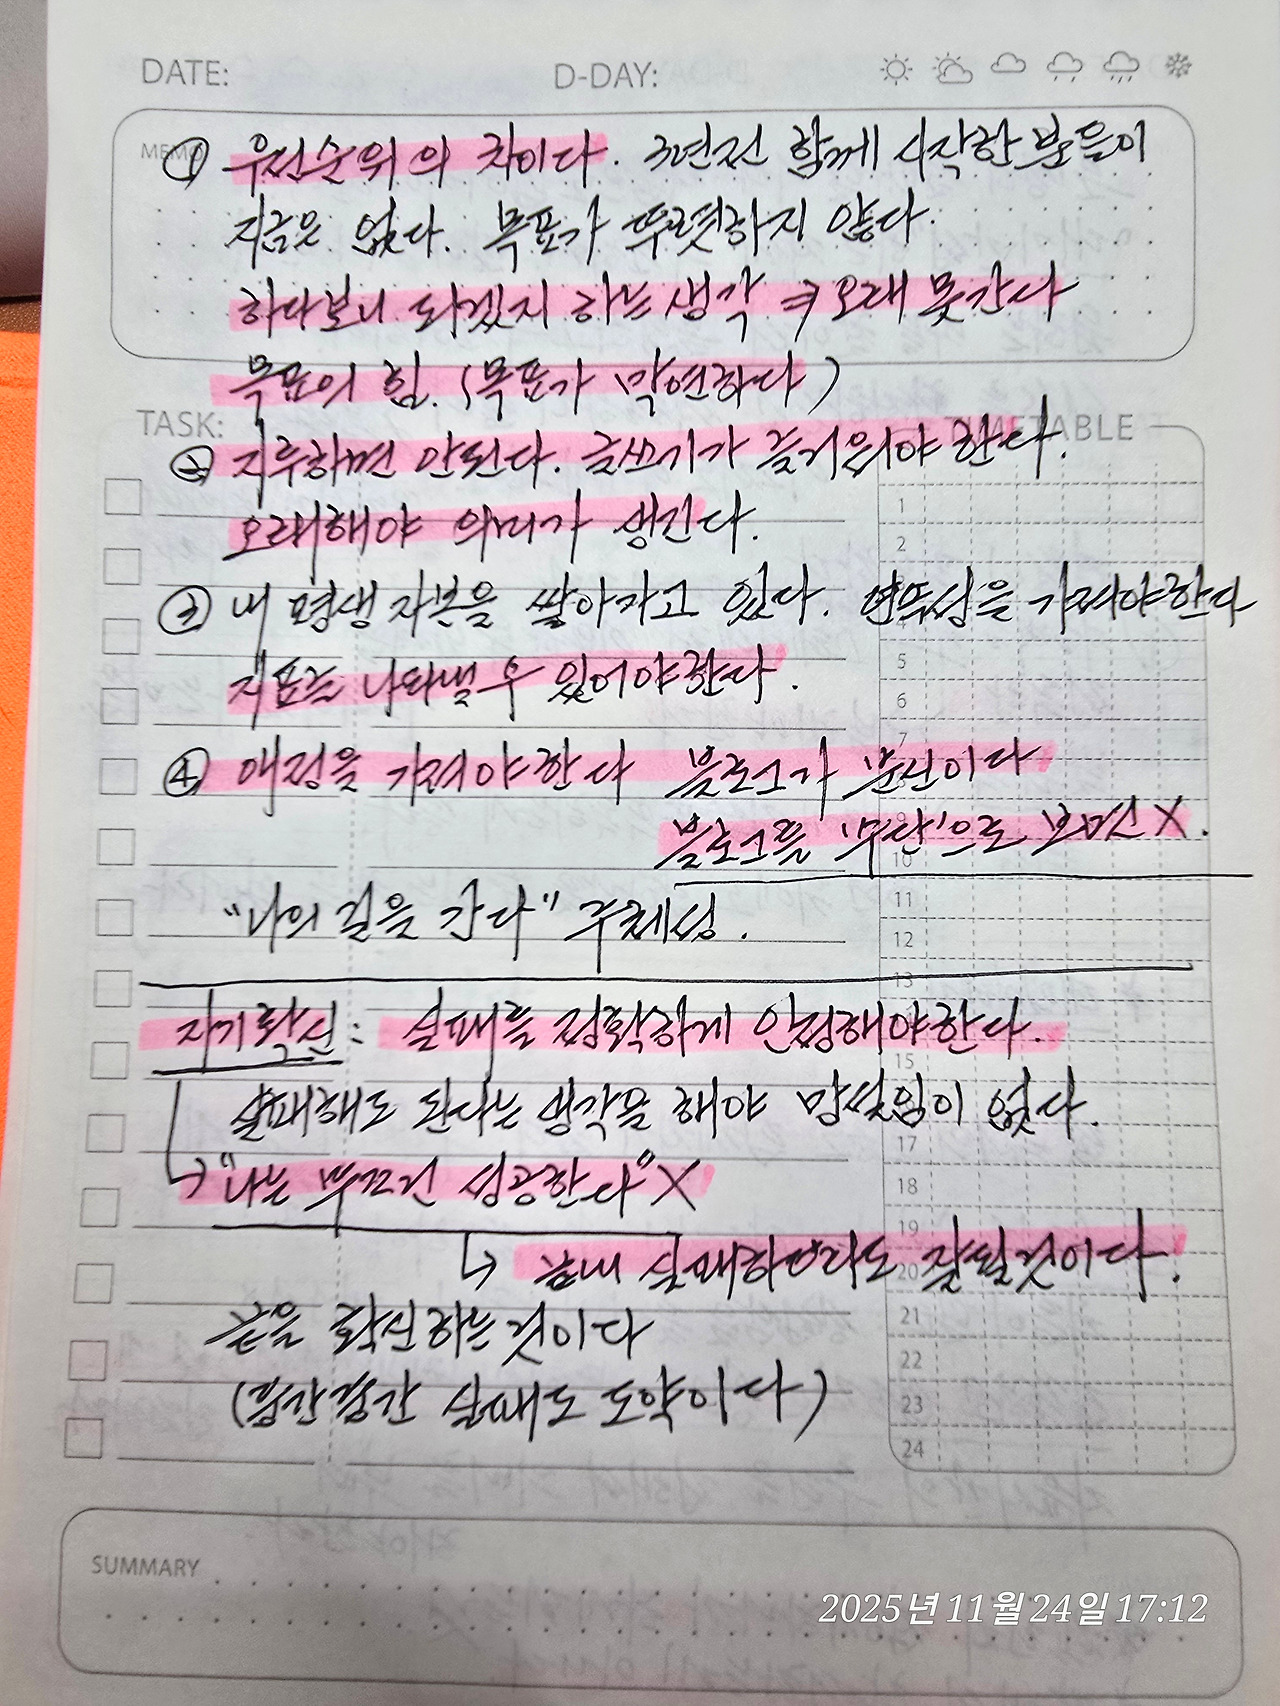 DATE: D-DAY:
MEMO
① 우선순위의 차이다. 3년전 함께 시작한 분들이
지금은 없다. 목표가 뚜렷하지 않다.
하다보니 되겠지 하는 생각 → 오래 못간다
목표의 힘. (목표가 막연하다)
TASK: TIMETABLE
② 지루하면 안된다. 글쓰기가 즐거워야 한다.
오래해야 의미가 생긴다.
③ 내 평생 자본을 쌓아가고 있다. 연속성을 가져야한다
지표로 나타낼 수 있어야한다.
④ 애정을 가져야 한다 블로그가 분신이다
블로그를 '수단'으로 보면 X.
"나의 길을 간다" 주체성.
자기확신: 실패를 정확하게 인정해야한다.
실패해도 된다는 생각을 해야 망설임이 없다.
↳ "나는 무조건 성공한다" X
↳ 끝내 실패하더라도 잘될것이다.
끝을 확신하는것이다
(중간중간 실패도 도약이다)
1
2
4
5
6
7
9
10
11
12
13
15
17
18
19
20
21
22
23
24
SUMMARY
2025년 11월 24일 17:12